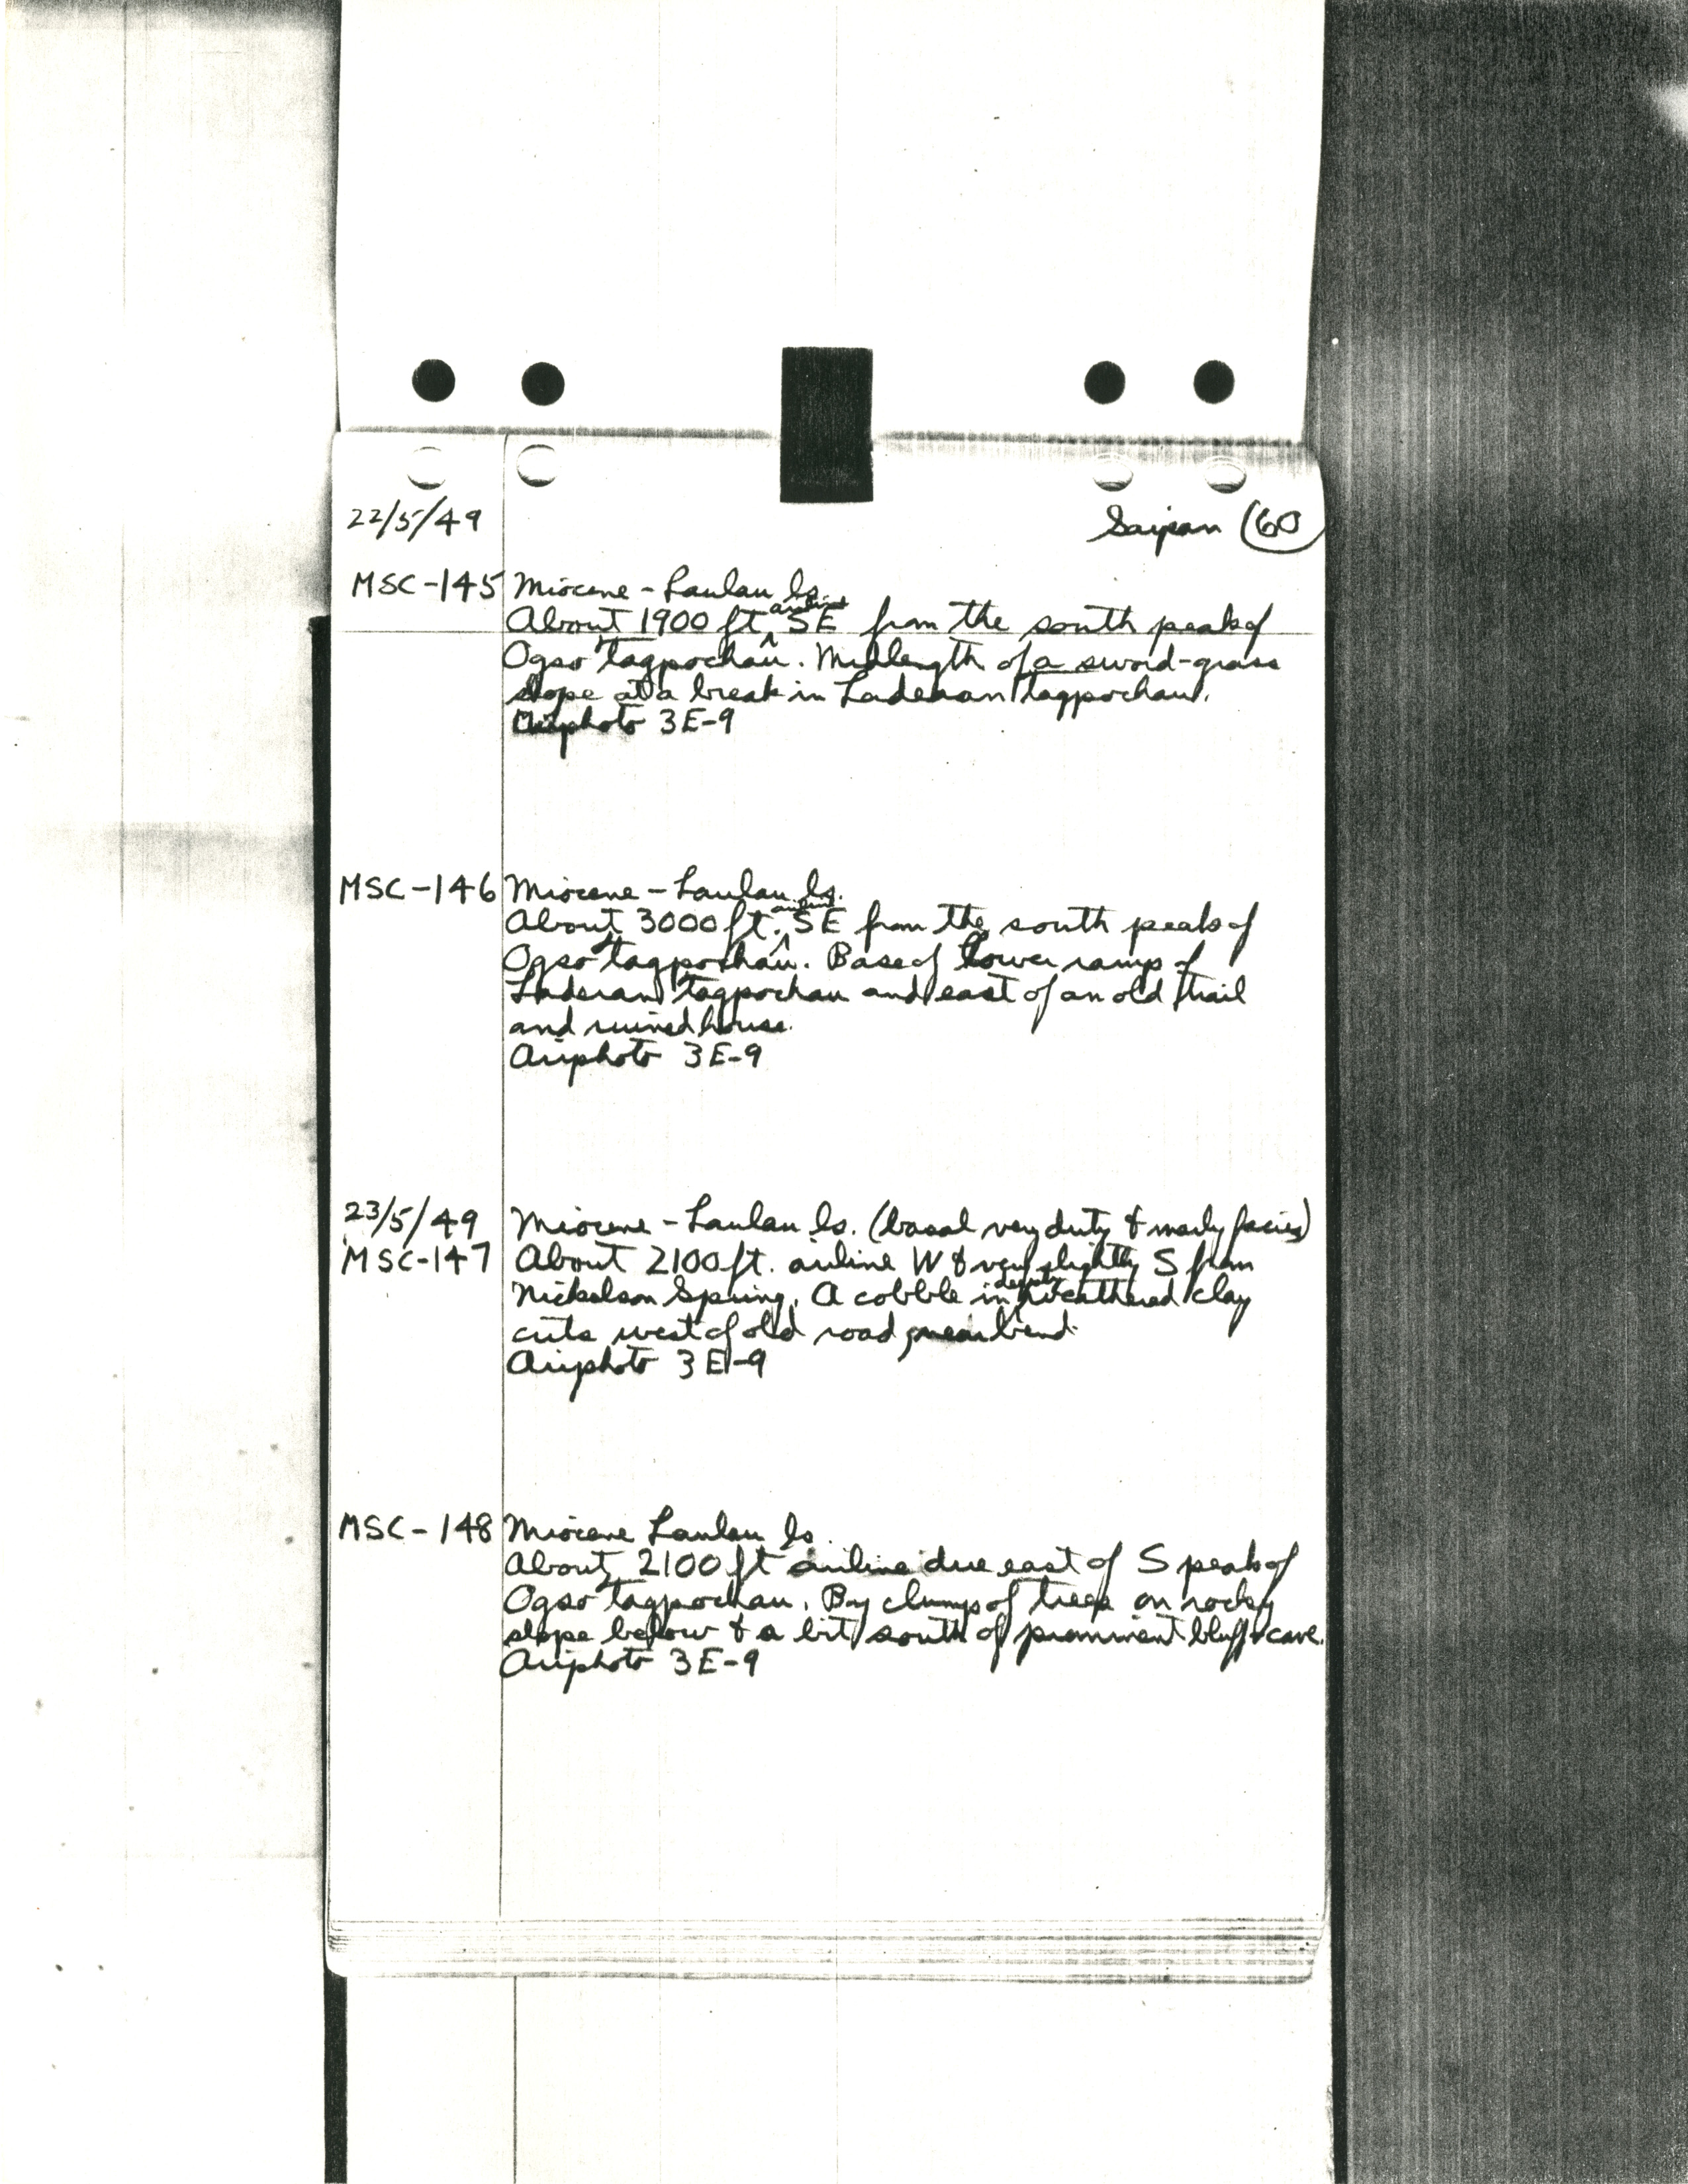 22/5/49 Saipan (60
MSC-145 Miocene - Laulau ls.
About 1900 ft. airline SE from the south peak of
Ogso Tagpochau. Midlength of a sword-grass
slope at a break in Laderan Tagpochau.
Airphoto 3E-9
MSC-146 Miocene - Laulau ls.
About 3000 ft. airline SE from the south peak of
Ogso Tagpochau. Base of lower ramp of
Laderan Tagpochau and east of an old trail
and ruined house.
Airphoto 3E-9
23/5/49 Miocene - Laulau ls. (basal very dirty & marly facies)
MSC-147 About 2100 ft. airline W & very slightly S from
Nickelson Spring. A cobble in deeply weathered clay
cuts west of old road, near bend.
Airphoto 3E-9
MSC-148 Miocene Laulau ls.
About 2100 ft airline due east of S peak of
Ogso Tagpochau. By clump of trees on rocky
slope below & a bit south of prominent bluff & cave.
Airphoto 3E-9